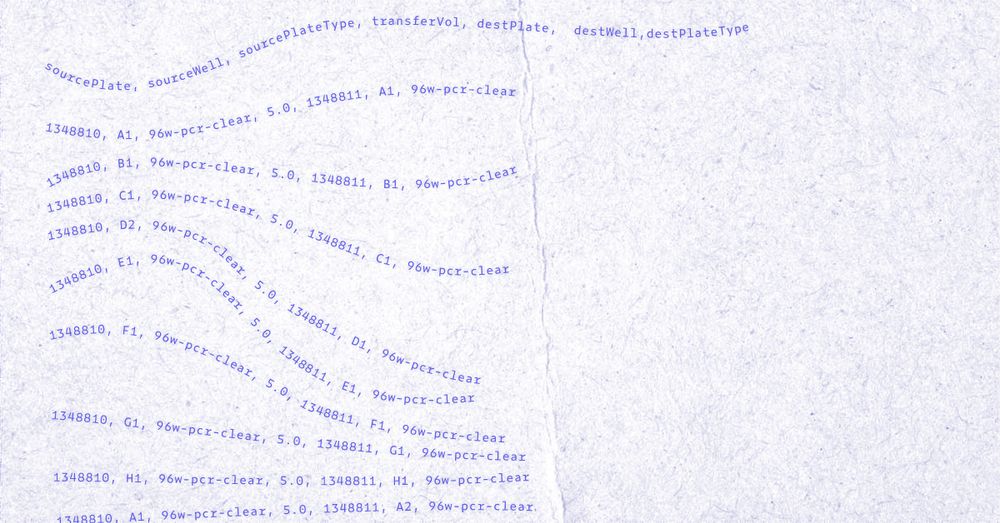 sourcePlate, sourceWell, sourcePlateType, transferVol, destPlate, destWell,destPlateType
1348810, A1, 96w-pcr-clear, 5.0, 1348811, A1, 96w-pcr-clear
1348810, B1, 96w-pcr-clear, 5.0, 1348811, B1, 96w-pcr-clear
1348810, C1, 96w-pcr-clear, 5.0, 1348811, C1, 96w-pcr-clear
1348810, D2, 96w-pcr-clear, 5.0, 1348811, D1, 96w-pcr-clear
1348810, E1, 96w-pcr-clear, 5.0, 1348811, E1, 96w-pcr-clear
1348810, F1, 96w-pcr-clear, 5.0, 1348811, F1, 96w-pcr-clear
1348810, G1, 96w-pcr-clear, 5.0, 1348811, G1, 96w-pcr-clear
1348810, H1, 96w-pcr-clear, 5.0, 1348811, H1, 96w-pcr-clear
1348810, A1, 96w-pcr-clear, 5.0, 1348811, A2, 96w-pcr-clear